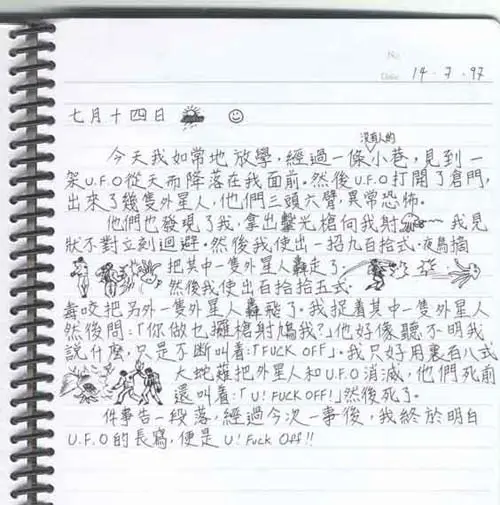 No.
Date 14・7・97
七月十四日
今天我如常地放學，經過一條小巷，見到一
沒有人的
架U.F.O從天而降落在我面前。然後U.F.O打開了倉門，
出來了幾隻外星人，他們三頭六臂，異常恐怖。
他們也發現了我，拿出激光槍向我射 我見
狀不對立刻迴避。然後我使出一招九百拾式．
把其中一隻外星人轟走了，
然後我使出百拾拾五式．
毒咬把另外一隻外星人轟飛了。我捉着其中一隻外星人
然後問：「你做乜攞槍射鳩我?」他好像聽不明我
說什麼，只是不斷叫着：「FUCK OFF」。我只好用裏百八式
大蛇薙把外星人和U.F.O消滅，他們死前
還叫着：「U! FUCK OFF!」然後死了。
件事告一段落，經過今次一事後，我終於明白
U.F.O的長寫，便是U! Fuck Off!!